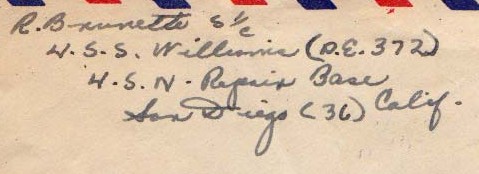 R. Brunette S 1/c
U.S.S. Williams (D.E. 372)
U.S.N. Repair Base
San Diego (36) Calif.